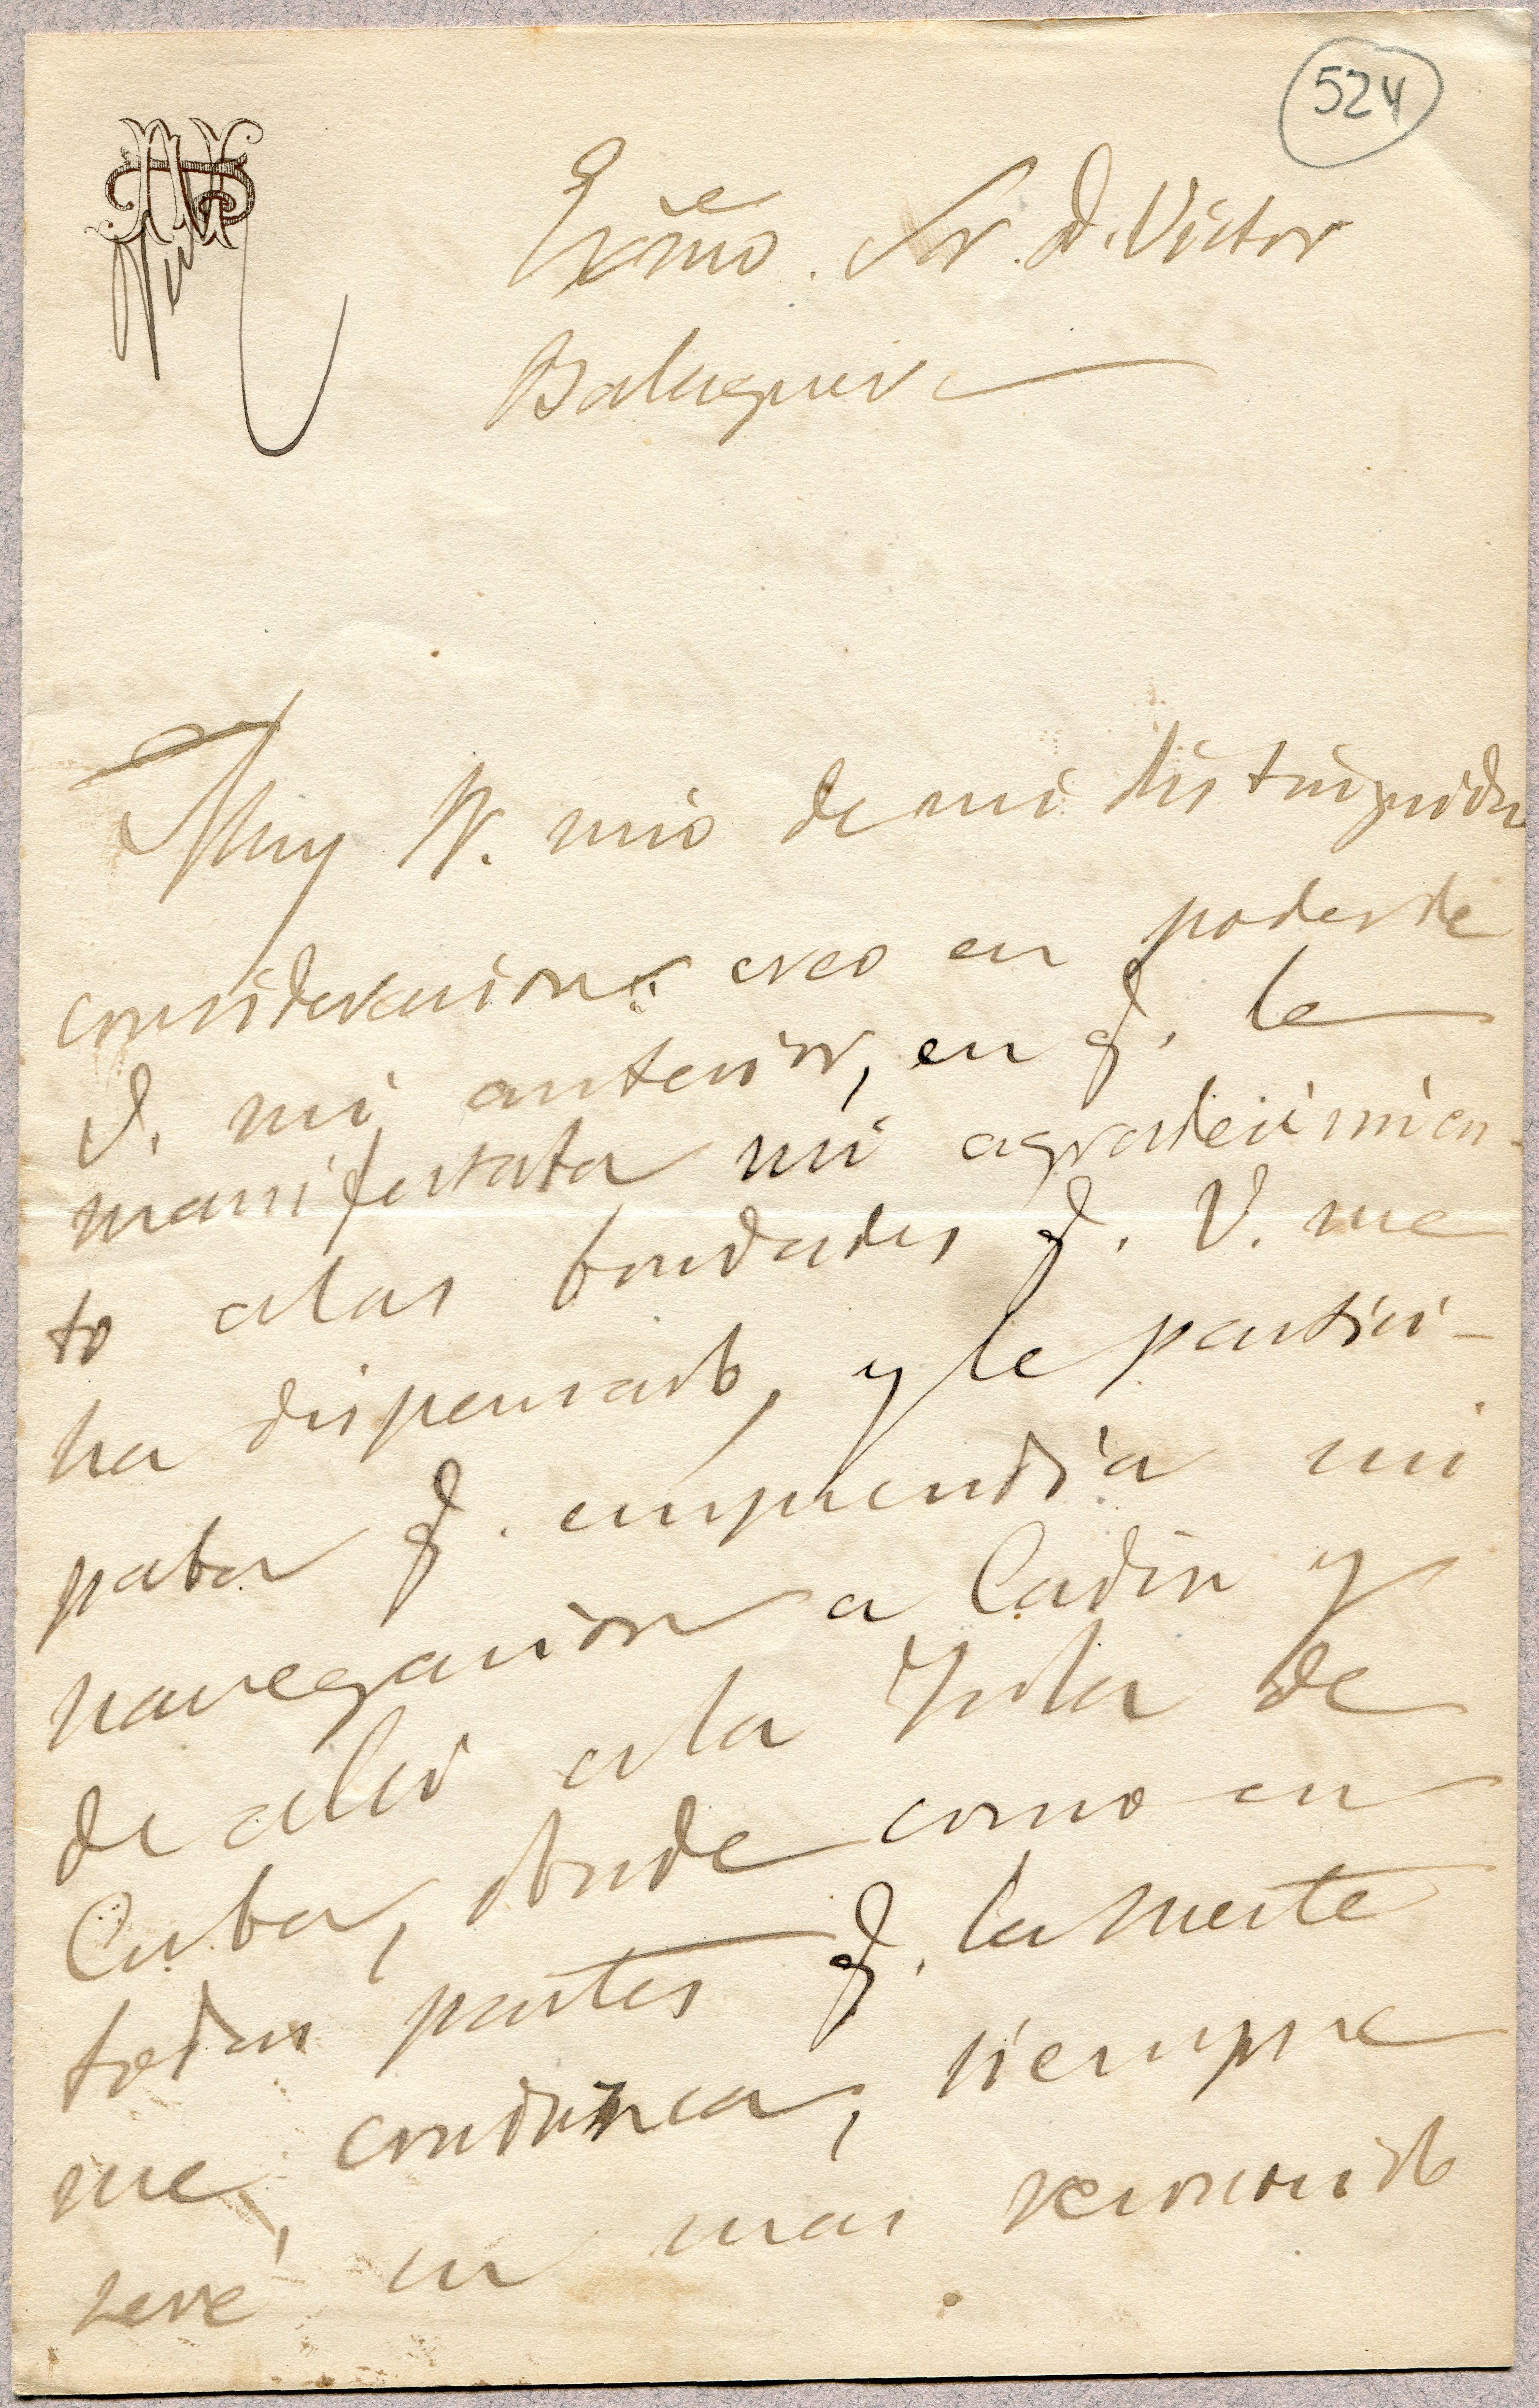 524
Exmo. Sr. D. Victor
Balaguer
Muy Sr. mio de mi distinguida
consideracion: creo en poder de
V. mi anterior, en q. le
manifestaba mi agradecimien-
to a las bondades q. V. me
ha dispensado, y le partici-
paba q. emprendia mi
navegacion a Cadiz y
de alli a la Isla de
Cuba, donde como en
todas partes q. la suerte
me conduzca, siempre
seré su mas reconocido